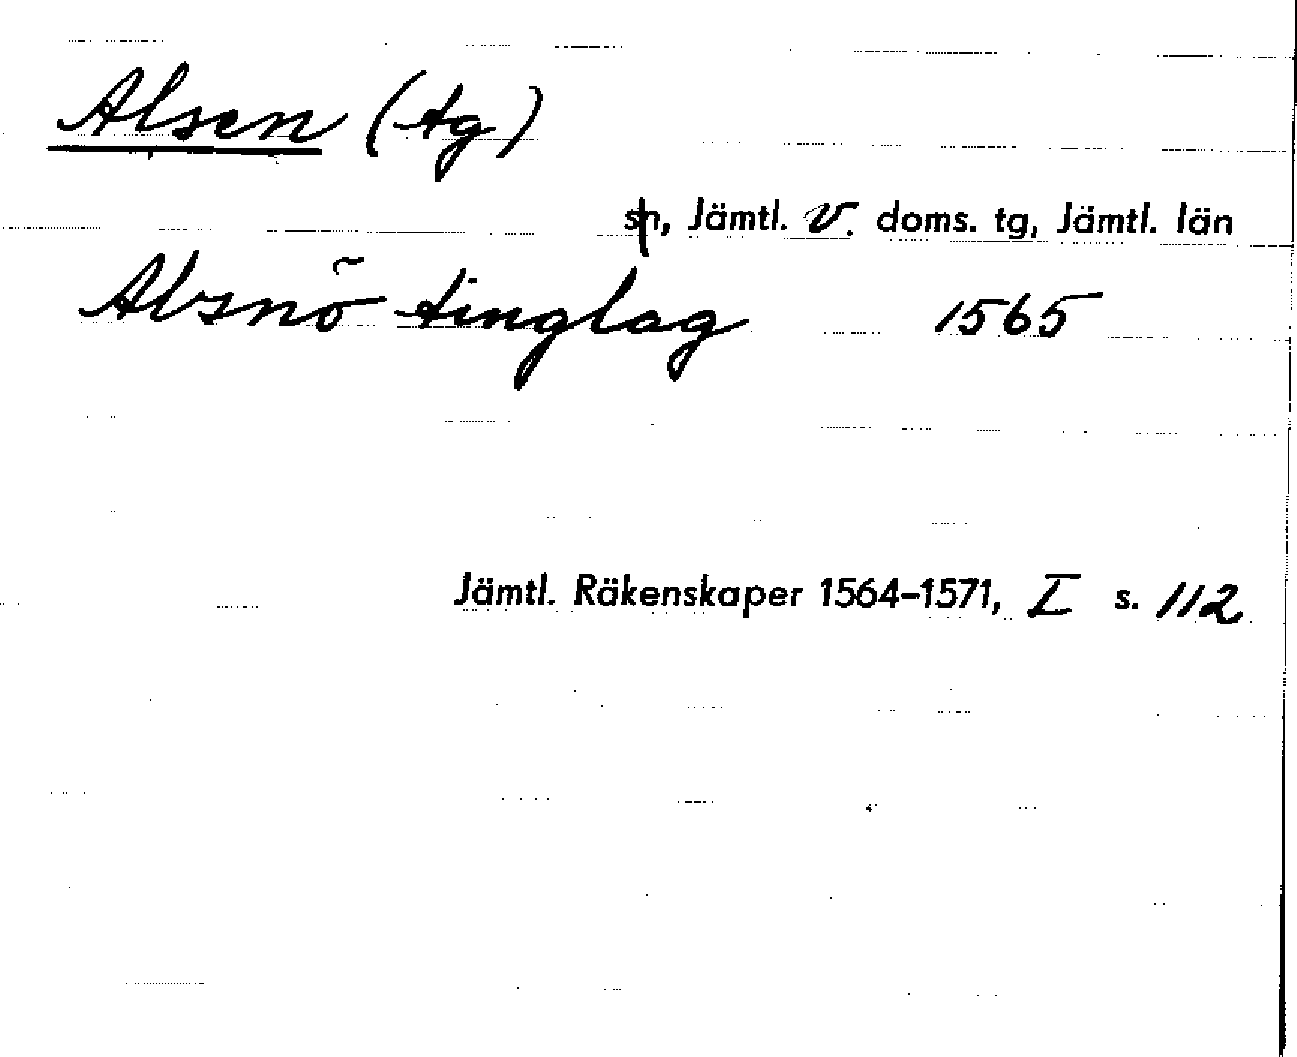 Alsen (tg)
sn, Jämtl. v. doms. tg, Jämtl. län
Alsnõ tinglag 1565
Jämtl. Räkenskaper 1564–1571, I s. 112